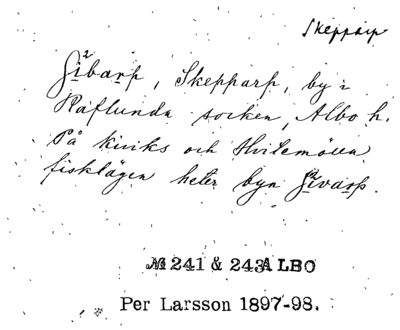 Skepparp
Gibarp, Skepparp, by i
Raflunda socken, Albo h.
På kiviks och Hvitemölla
fisklägen heter byn Givarp.
№ 241 & 243 ALBO
Per Larsson 1897-98.